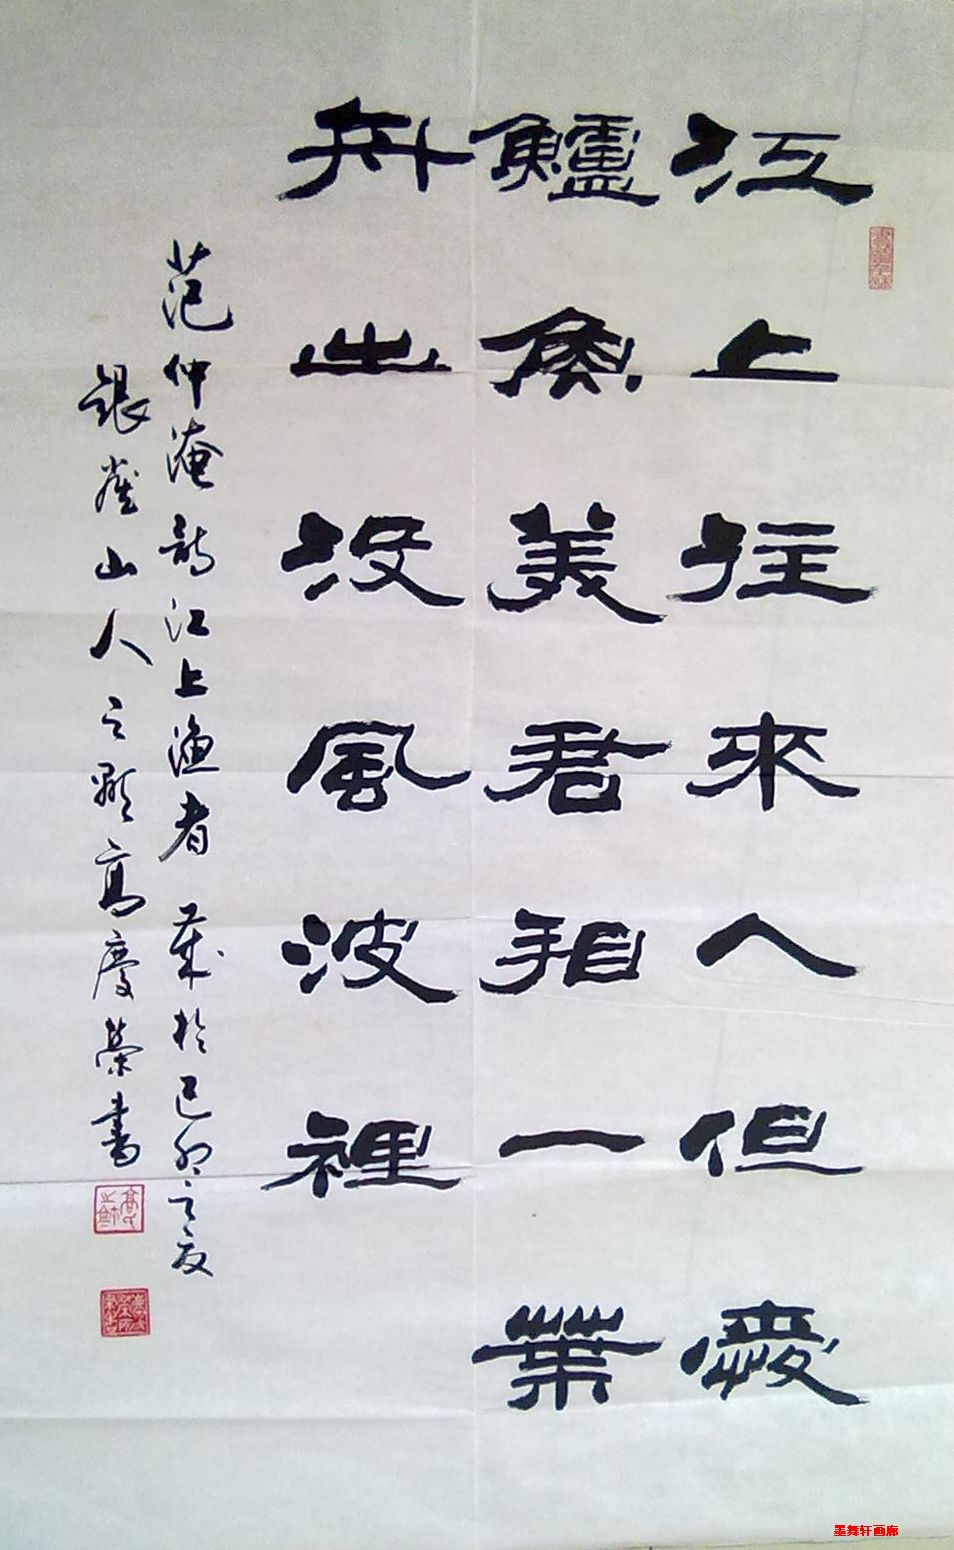 江上往來人但愛
鱸魚美君看一葉
舟出沒風波裡
范仲淹詩江上漁者 歲於己卯之夏
銀雀山人之顯高慶榮書
墨舞轩画廊